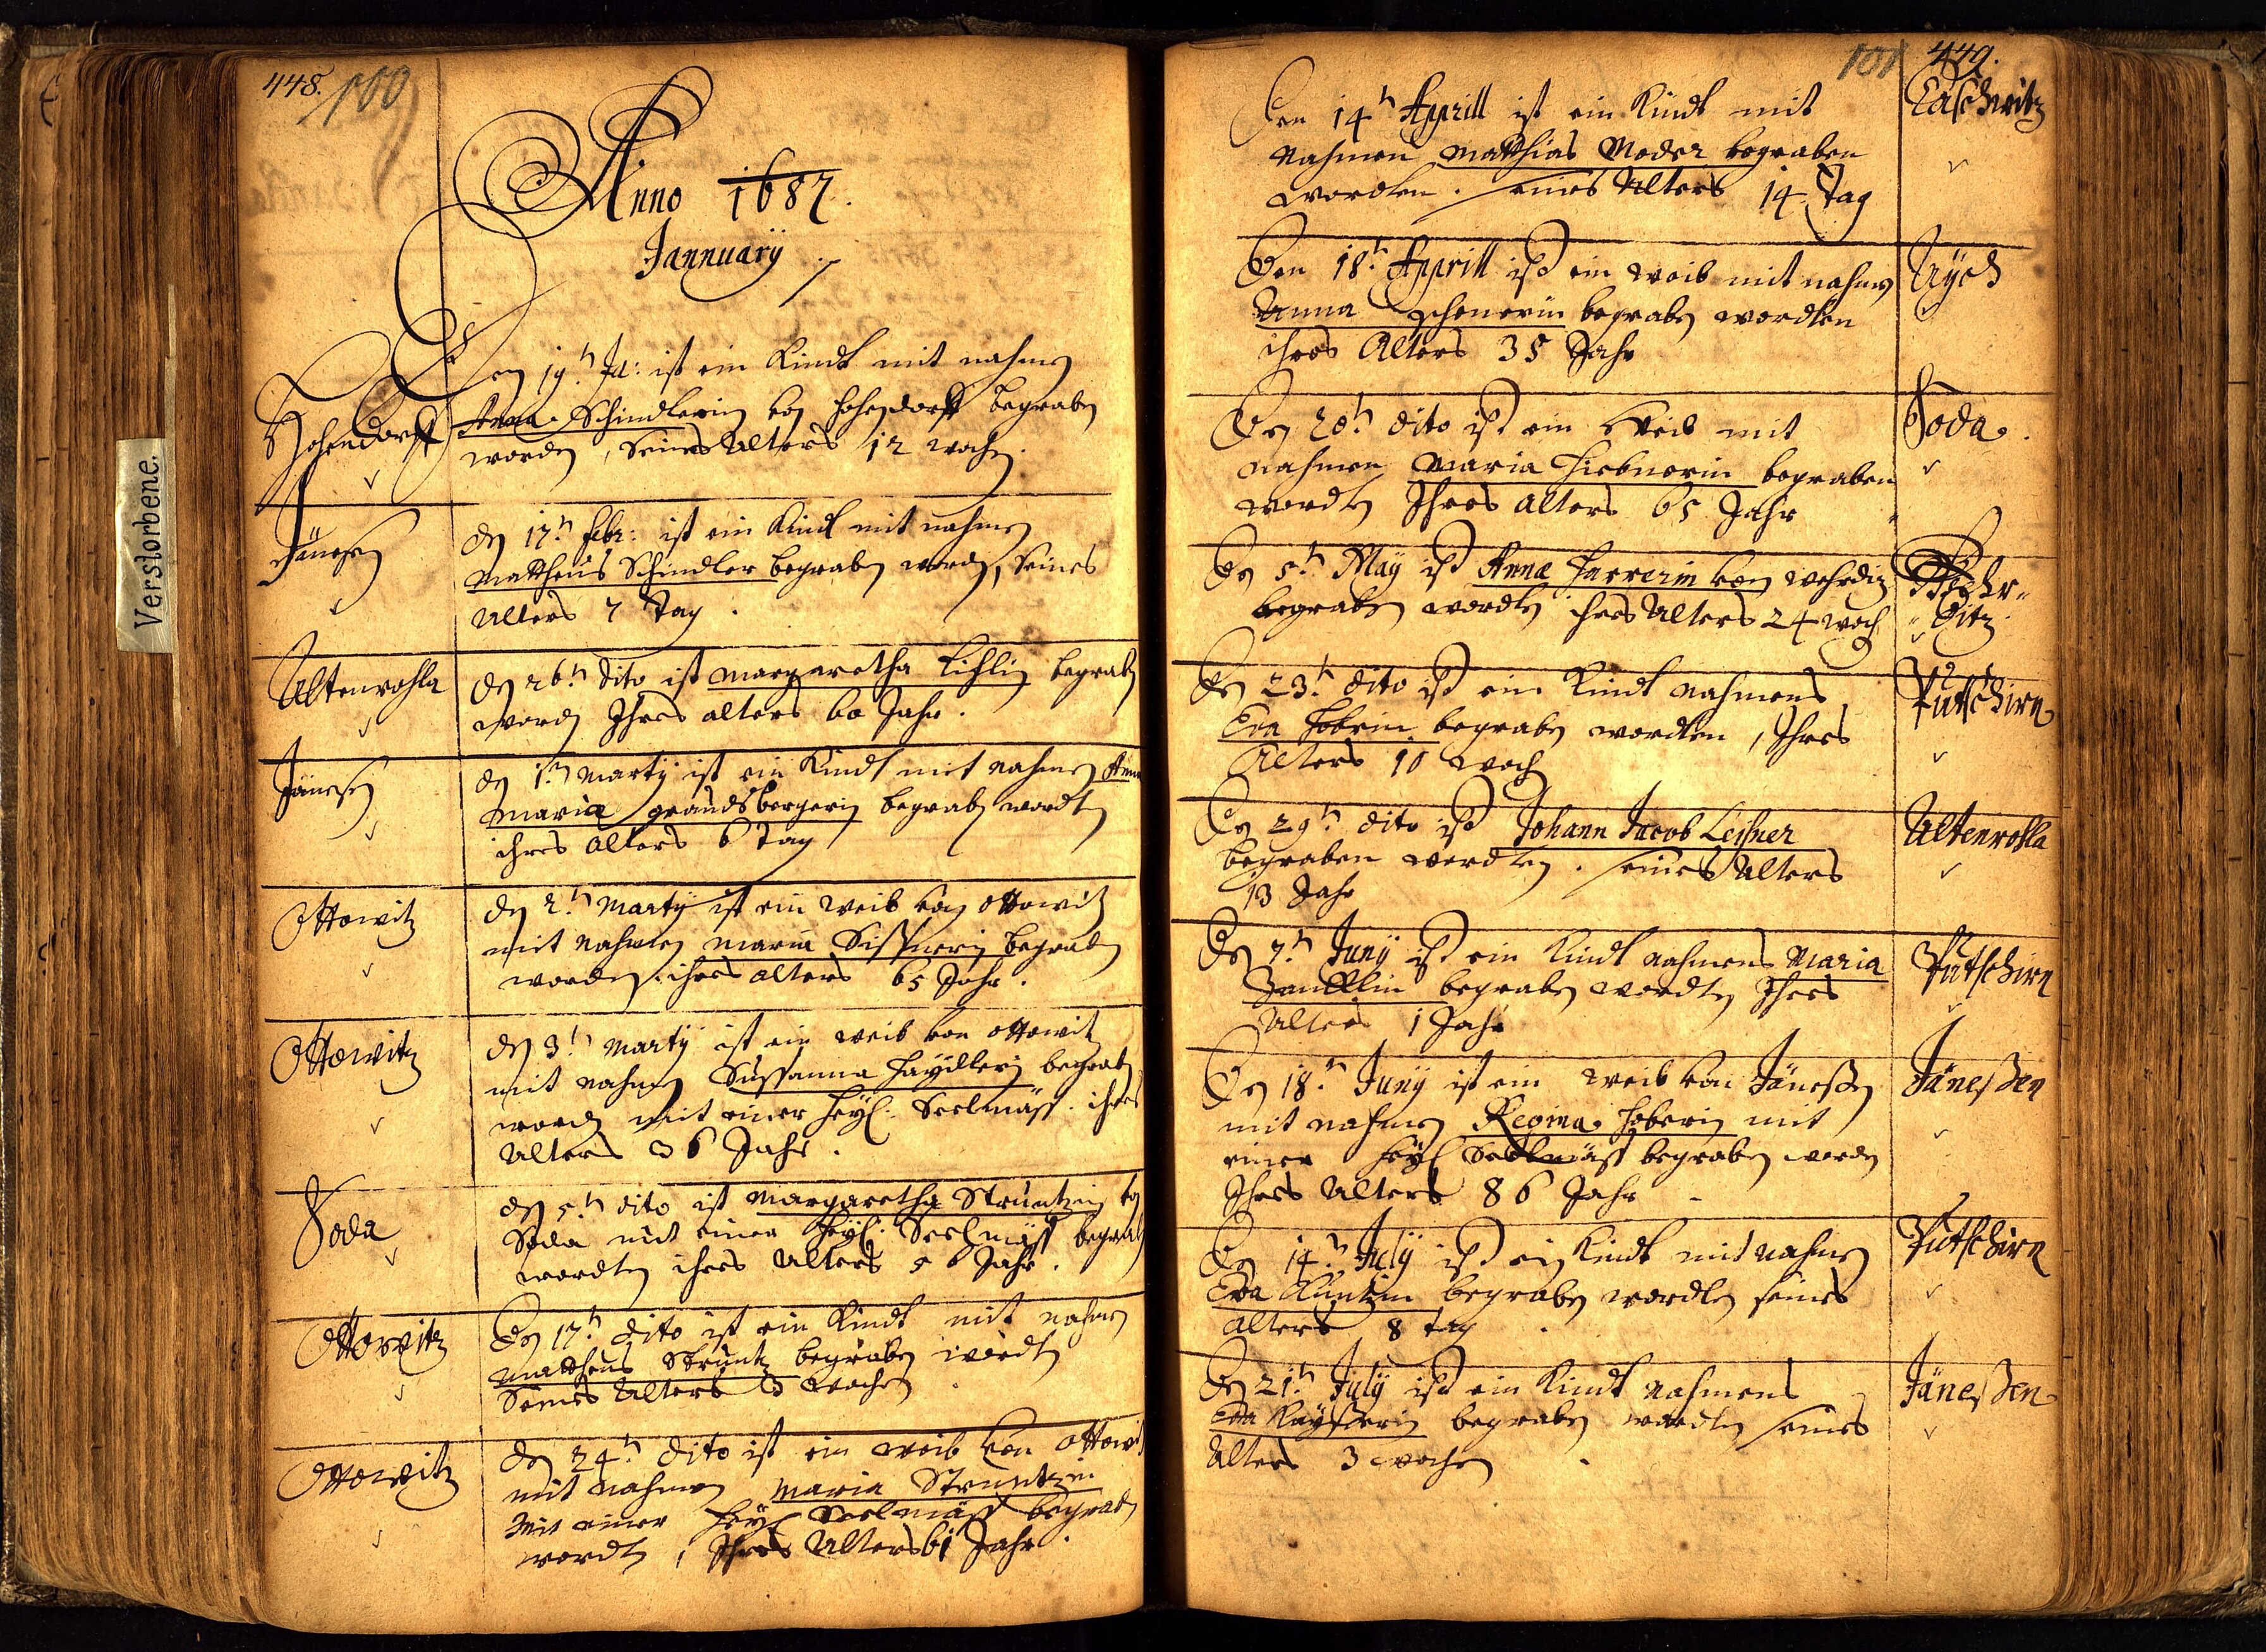 448.
100
Verstorbene.
Anno 1687.
Jannuarÿ
Hohendorff
Den 19.ⁿ Ja: ist ein Kindt mit nahmen
Anna Schindlerin von Hohendorff begraben
worden, Seines Alters 12 wochen.
Jänesen
den 17.ⁿ Febr: ist ein Kindt mit nahmen
Mattheus Schindler begraben worden, Seines
Alters 7 Tag.
Altenrohla
den 26.ⁿ dito ist Margaretha begraben
worden Ihres alters 60 Jahr.
Jänesen
den 1.ⁿ Martÿ ist ein Kindt mit nahmen Anna
Maria begraben wordten
ihres Alters 6 Tag
Ottowitz
den 2.ⁿ Martÿ ist ein weib von Ottowitz
mit nahmen Maria begraben
worden. ihres alters 65 Jahr.
Ottowitz
den 3.ⁿ Martÿ ist ein weib von Ottowitz
mit nahmen Sussanna begraben
worden mit einer Heyl: Seelmäss. ihres
Alters 36 Jahr.
Soda
den 5.ⁿ dito ist Margaretha Struntzin von
Soda mit einer Heyl: Seelmäss begraben
wordten ihres Alters 56 Jahr.
Ottowitz
Den 17.ⁿ dito ist ein Kindt mit nahmen
Mattheus Struntz begraben wordten
Seines Alters 3 wochen
Ottowitz
den 24.ⁿ dito ist ein weib von Ottowitz
mit nahmen Maria Struntzin
Mit einer Heyl Seelmäss begraben
wordten, Ihres Alters 61 Jahr.
101
449.
Den 14.ⁿ Aprill ist ein Kindt mit
Nahmen Matthias Moder begraben
wordten. seines Alters 14 Tag
Taschwitz
Den 18.ⁿ Aprill ist ein weib mit nahmen
Anna begraben wordten
ihres Alters 35 Jahr
Aÿch
Den 20.ⁿ dito ist ein Weib mit
nahmen Maria Hiebnerin begraben
wordten Ihres alters 65 Jahr
Soda.
Den 5.ⁿ Maÿ ist Anna von wehrditz
begraben wordten ihres Alters 24 woch
Wehr-
ditz
Den 23.ⁿ dito ist ein Kindt nahmens
Eva begraben wordten, Ihres
Alters 10 woch
Putschirn
Den 29.ⁿ dito ist Johann Jacob Leißner
begraben wordten. seines Alters
13 Jahr
Altenrohla
Den 7.ⁿ Junÿ ist ein Kindt nahmens Maria
begraben wordten Ihres
Alters 1 Jahr
Putschirn
Den 18.ⁿ Junÿ ist ein weib von Jäneßen
mit nahmen Regina Hoberin mit
einer Heyl Seelmäss begraben worden
Ihres Alters 86 Jahr
Jäneßen
Den 14.ⁿ Julÿ ist ein Kindt mit nahmen
Eva begraben wordten seines
alters 8 tag
Putschirn
Den 21.ⁿ Julÿ ist ein Kindt nahmens
Eva Kaÿserin begraben wordten seines
Alters 3 wochen
Jäneßen